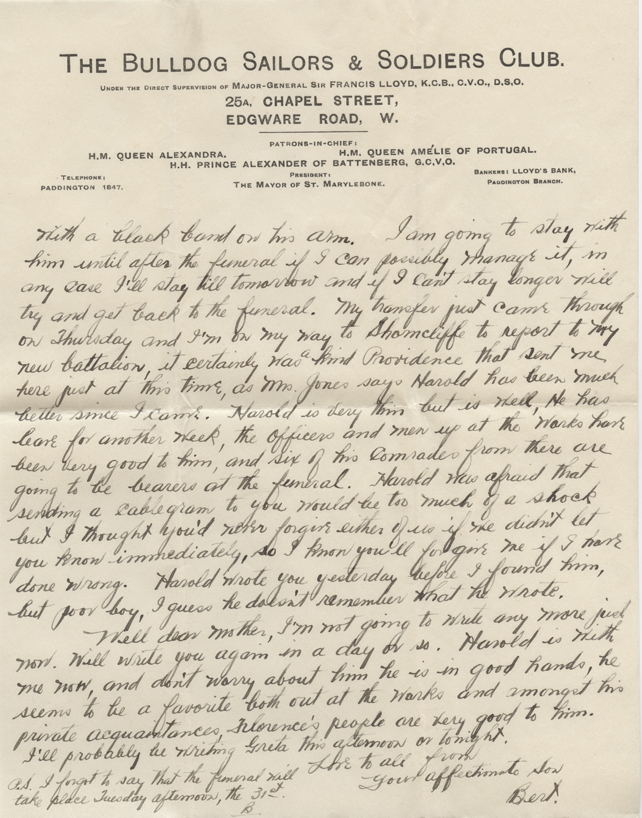 THE BULLDOG SAILORS & SOLDIERS CLUB.
UNDER THE DIRECT SUPERVISION OF MAJOR-GENERAL SIR FRANCIS LLOYD, K.C.B., C.V.O., D.S.O.
25A, CHAPEL STREET,
EDGWARE ROAD, W.
PATRONS-IN-CHIEF:
H.M. QUEEN ALEXANDRA. H.M. QUEEN AMÉLIE OF PORTUGAL.
H.H. PRINCE ALEXANDER OF BATTENBERG, G.C.V.O.
TELEPHONE: PRESIDENT: BANKERS: LLOYD'S BANK,
PADDINGTON 1847. THE MAYOR OF ST. MARYLEBONE. PADDINGTON BRANCH.
with a black band on his arm. I am going to stay with
him until after the funeral if I can possibly manage it, in
any case I'll stay till tomorrow and if I can't stay longer will
try and get back to the funeral. My transfer just came through
on Thursday and I'm on my way to Shorncliffe to report to my
new battalion, it certainly was a kind Providence that sent me
here just at this time, as Mrs. Jones says Harold has been much
better since I came. Harold is very thin but is well, He has
leave for another week, the officers and men up at the Works have
been very good to him, and six of his comrades from there are
going to be bearers at the funeral. Harold was afraid that
sending a cablegram to you would be too much of a shock
but I thought you'd never forgive either of us if we didn't let
you know immediately, so I know you'll forgive me if I have
done wrong. Harold wrote you yesterday before I found him,
but poor boy, I guess he doesn't remember what he wrote.
Well dear mother, I'm not going to write any more just
now. Will write you again in a day or so. Harold is with
me now, and don't worry about him he is in good hands, he
seems to be a favorite both out at the Works and amongst his
private acquantances, Florence's people are very good to him.
I'll probably be writing Greta this afternoon or tonight.
Love to all from
Your affectionate son
Bert.
P.S. I forgot to say that the funeral will
take place Tuesday afternoon, the 31st.
B.